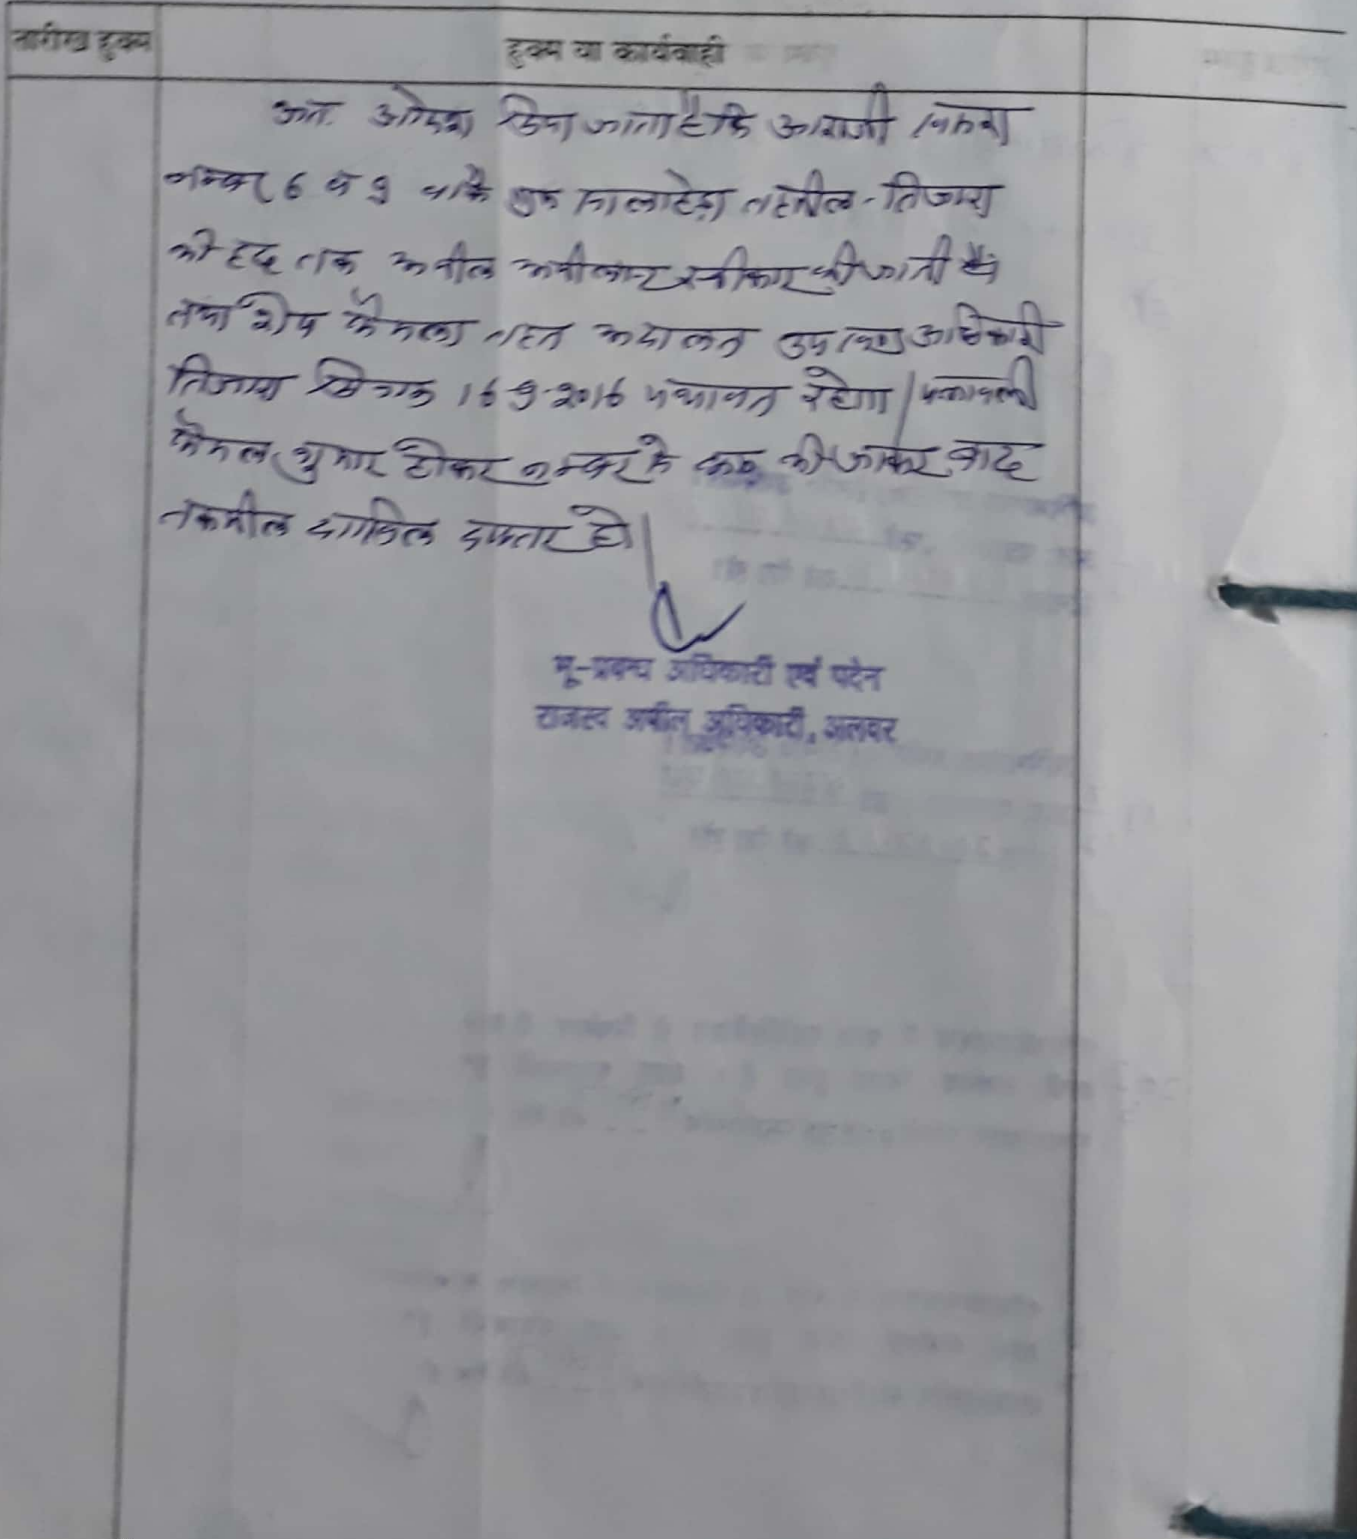 तारीख हुक्म
हुक्म या कार्यवाही
अतः आदेश दिया जाता है कि आराजी खसरा
नम्बर 6 व 9 वाके ग्राम तहसील तिजारा
की हद तक अपील अपीलान्ट स्वीकार की जाती है
तथा शेष फैसला तहत अदालत उपखण्ड अधिकारी
तिजारा दिनांक 16-9-2016 यथावत रहेगा। पत्रावली
फैसल शुमार होकर नम्बर से कम की जाकर बाद
तकमील दाखिल दफ्तर हो।
भू-प्रबन्ध अधिकारी एवं पदेन
राजस्व अपील अधिकारी, अलवर